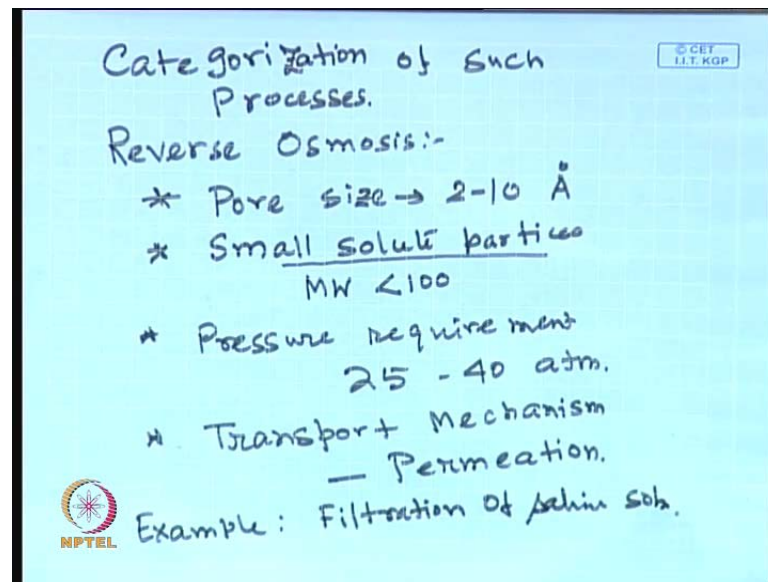 Categorization of such
Processes.
© CET
I.I.T. KGP
Reverse Osmosis:-
* Pore size → 2-10 Å
* Small solute particles
MW <100
* Pressure requirement
25 - 40 atm.
* Transport Mechanism
— Permeation.
Example: Filtration of saline soln.
NPTEL